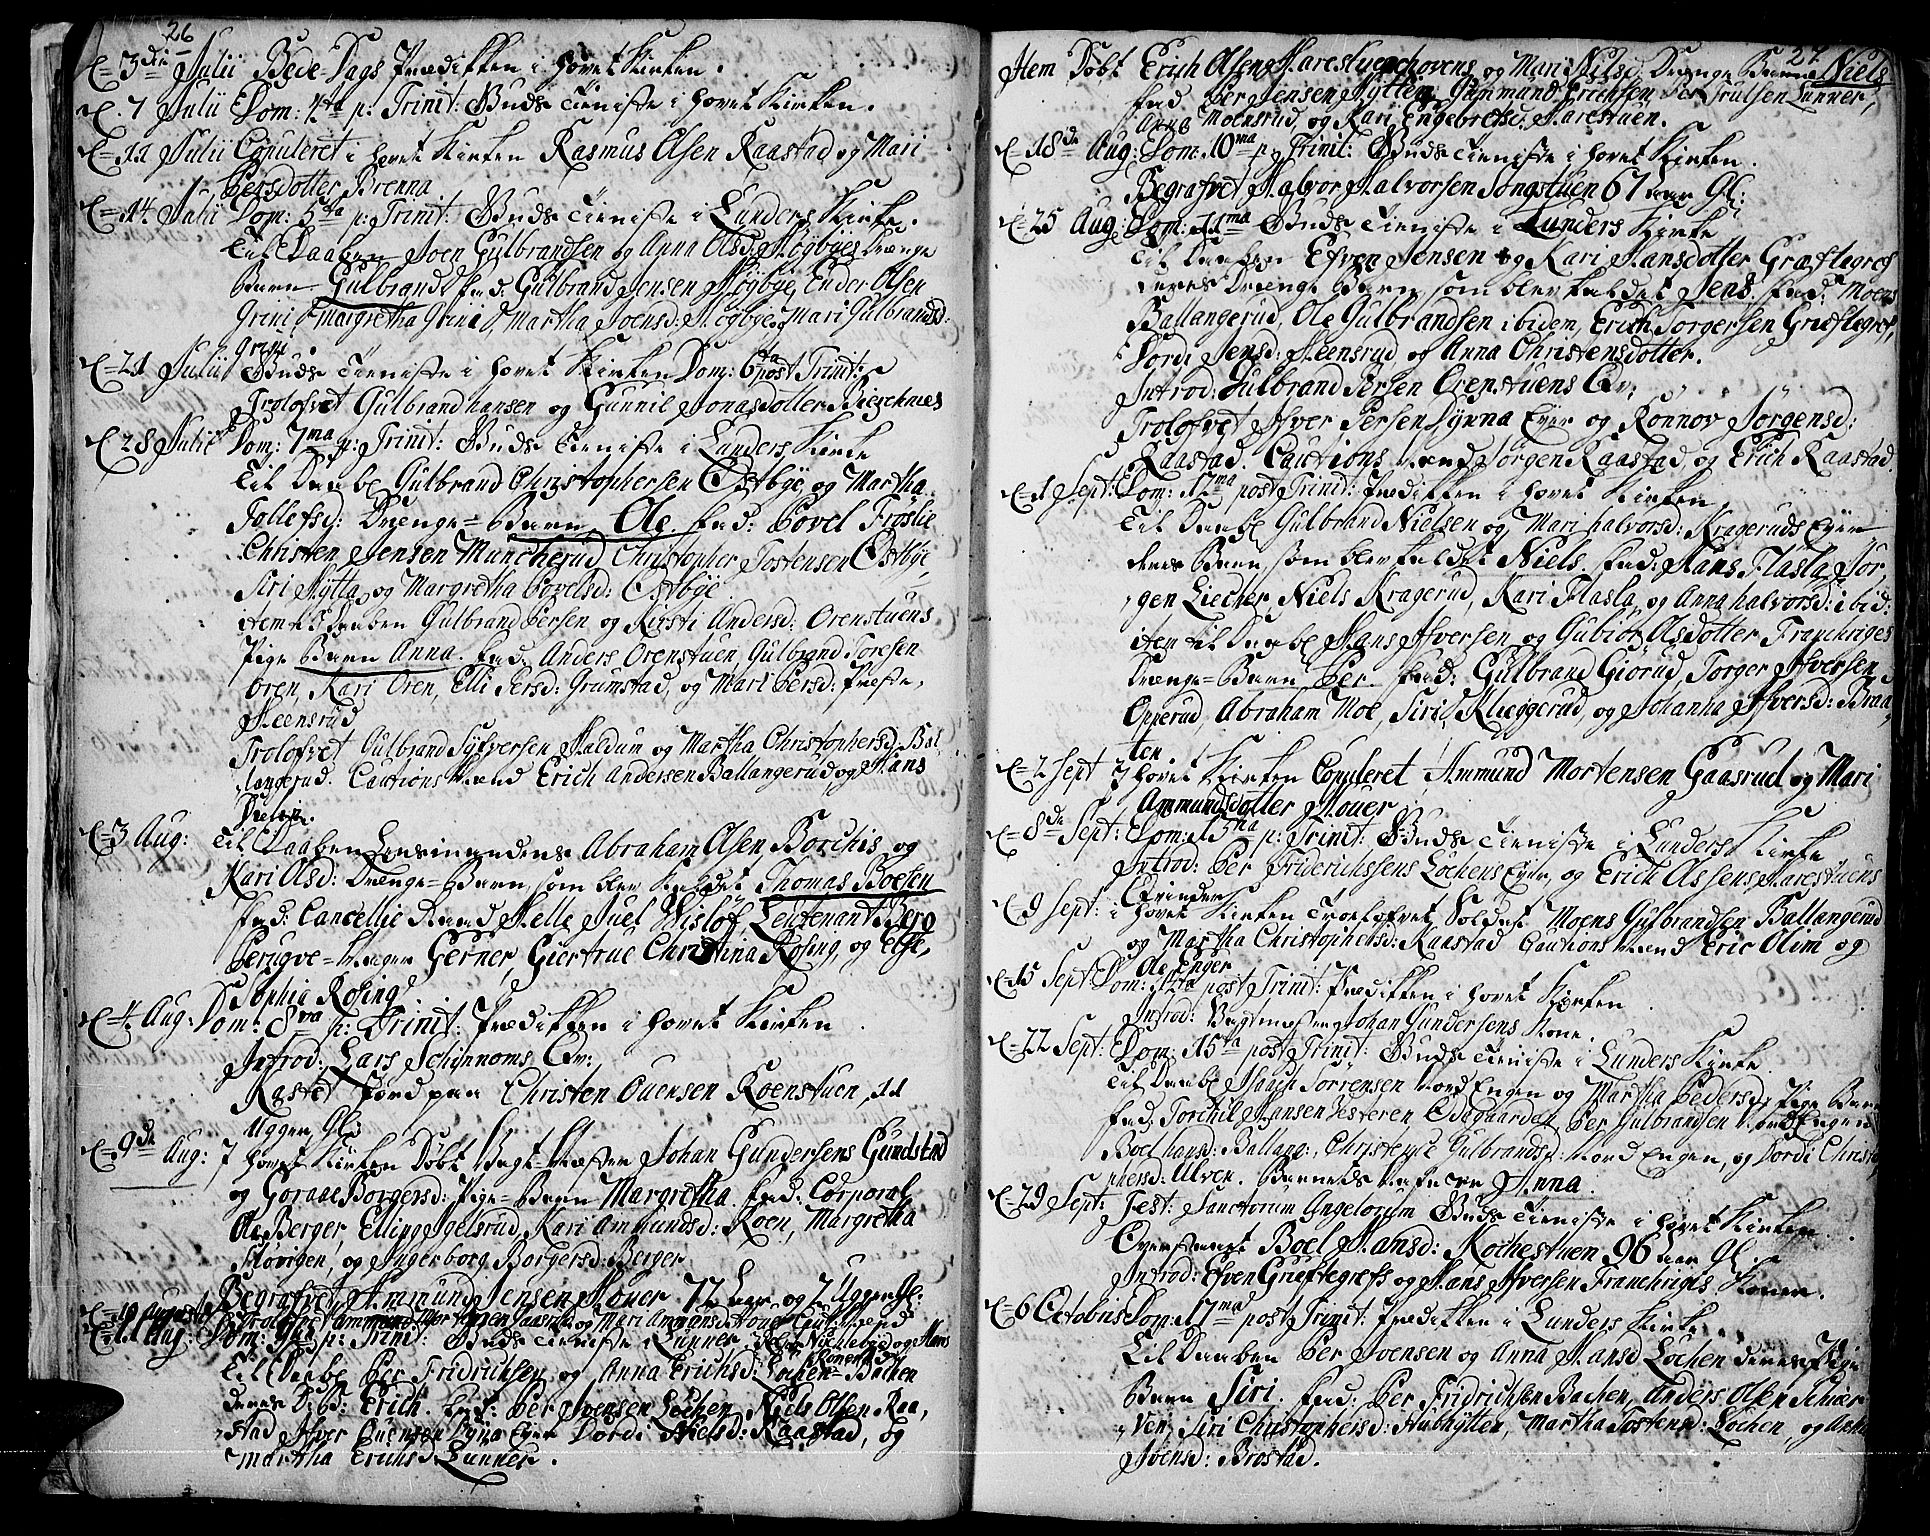 26
d. 3die Julii Bede-Dags Prædiken i hovet Kirken.
d. 7 Julii Dom: 4ta p. Trinit: Guds Tieniste i hovet Kirken.
d. 11 Julii Copuleret i hovet Kirken Rasmus Olsen Raastad og Mari
Persdotter Brenna
d. 14 Julii Dom: 5ta p: Trinit: Guds Tieniste i Lunders Kirke.
Til Daaben Joen Gulbrandsen og Anna Olsd: Høgbyes Drænge
Barn Gulbrand fad: Gulbrand Jensen Høgbye, Ender Olsen
Grini Margretha Grina, Martha Joensd: Høgbye, Mari Gulbrandsd:
Grini.
d. 21 Julii Guds Tieniste i hovet Kirken Dom: 6ta post Trinit:
Trolofvet Gulbrand hansen og Gunnil Jonasdotter
d. 28 Julii Dom: 7ma p: Trinit: Guds Tieniste i Lunders Kirke
Til Daabe Gulbrand Christophersen Østbye, og Martha
Tollefsd: Drænge-Barn Ole. fad: Povel Frøslie
Christen Jensen Muncherud, Christopher Tostensen Østbye,
Siri Hytta, og Margretha Povelsd: Østbye.
item til Daaben Gulbrand Persen og Kirsti Andersd: Orenstuens
Pige Barn Anna. fad: Anders Orenstuen, Gulbrand Toresen
Oren, Kari Oren, Elli Persd: Grumstad, og Mari Persd: Præste,
Heensrud
Trolofvet Gulbrand Syfversen Haldum og Martha Christophersd: Bal
langerud. Cautions Mænd Erich Andersen Ballangerud, og Hans

d. 3 Aug: Til Daaben Lensmandens Abraham Olsen Borchis og
Kari Olsd: Drænge-Barn, som blev kaldet Thomas Boesen
fad: Cancellie Raad Helle Juel Wisløf, Leutenant Berg
Peruqve-mager Gerner, Giertrue Christina Rosing, og Else,
Sophia Rosing
d. 4 Aug: Dom: 8va p: Trinit: Prædiken i hovet Kirken
Introd: Lars Schinnoms Qv:
Kastet Jord paa Christen Ouensen Roenstuen, 11
Uger Gl:
d. 9de Aug: I hovet Kirken Døbt Johan Gundersens Gundstad
og Goraae Borgersd: Pige-Barn Margretha. fad: Corporal
Ole Berger, Elling Igelsrud, Kari Ammundsd: Roen, Margretha
Støvigen, og Ingerborg Borgersd: Berger
Begrafvet Ammund Jensen Houer 72 aar og 7 Uger Gl:
d. 10 Augusti Trolofvet Ammund Mortensen Gaasrud og Mari
d. 11 Aug: Dom: 9na p: Trinit: Guds Tieniste i Lunner
Til Daabe Per Fridrichsen og Anna Erichsd: Lochen-Bachen
deres D: B: Erich. Test: Per Ivensen Lochen, Niels Olsen Raa,
stad Ifver Ouensen Dyna Eyer Dordi Nielsd: Raastad, og
Martha Erichsd: Lunner.
27
Item Døbt Erich Olsen Harestuens hovens og Mari Nilsd: Drænge Barn Niels
fad Per Jensen Hytten, Gummund Erichsen, Per Trulsen Lunner,
Anna Moensrud, og Kari Engebretsd: Harestuen.
d. 18de Aug: Dom: 10ma p: Trinit: Guds Tieniste i hovet Kirken.
Begrafvet Halvor Halvorsen Songstuen 67 aar Gl:
d. 25 Aug: Dom: 11ma Guds Tieniste i Lunders Kirke
Til Daaben Efven Jensen og Kari Hansdotter Græftegref
deres Drænge Barn som blev kaldet Jens. fad: Moens
Ballangerud, Ole Gulbrandsen ibidem, Erich Torgersen Græftegref,
Dordi Jensd: Heensrud og Anna Christensdotter.
Introd: Gulbrand Persen Orenstuens Qv:
Trolofvet Ifver Persen Dynna Eyer og Ronnov Jørgensd:
Raastad. Cautions Mænd Jørgen Raastad, og Erich Raastad.
d. 1 Sept: Dom: 12ma post Trinit: Prædiken i hovet Kirken
Til Daabe Gulbrand Nielsen og Mari halvorsd: Krageruds Eyer
deres Barn, som blev kaldet Niels. fad: Hans Flasla, Jør,
gen Liecher, Niels Kragerud, Kari Flasla, og Anna halvorsd: ibid:
item til Daabe Hans Ifversen og Gubior Olsdotter Franchriges
Drænge-Barn Per. fad: Gulbrand Giørud, Torger Ifversen
Opperud, Abraham Moe, Siri Klæggerud, og Johanna Ifversd: Braa,
ten.
d. 2 Sept I hovet Kirken Copuleret Ammund Mortensen Gaasrud og Mari
Ammundsdotter Houer
d. 8de Sept: Dom: 13na p: Trinit: Guds Tieniste i Lunders Kirke
Introd: Per Friderichssens Lochens Eyer, og Erich Olsens Harestuens
Qvinder
d. 9 Sept: i hovet Kirken Trolofvet Soldat Moens Gulbrandsen Ballangerud
og Martha Christophersd: Raastad Cautions Mænd Eric Olim og
Ole Enger
d. 15 Sept Dom: 14ta post Trinit: Prædiken i hovet Kirken
Introd: Johan Gundersens Kone.
d. 22 Sept: Dom: 15ta post Trinit: Guds Tieniste i Lunders Kirke.
Til Daabe Isaach Sørrensen Nord Engen og Martha Pedersd: Pige Barn
fad: Torchil Hansen Vesteren Odegaarden, Per Gulbrandsen Nord Engen
Boel hansd: Ballang:, Christense Gulbrandsd: Nord Engen, og Dordi Christo
phersd: Ulven. Barnets Nafn er Anna.
d. 29 Sept: Fest: Sanctorum Angelorum Guds Tieniste i hovet Kirken.
Boel Hansd: Kochestuen 96 aar Gl:
Introd: Efven Græftegrefs og Hans Ifversen Franchrigis Koner.
d. 6 Octobris Dom: 17ma post Trinit: Prædiken i Lunders Kirke
Til Daaben Per Ivensen og Anna Hansd Lochen deres Pige
Barn Siri. fad: Per Fridrichsen Bachen, Anders Olsen Schiær
ven, Siri Christophersd: Aubhytten, Martha Tostensd: Lochen, og Anna
Ivensd: Brostad.